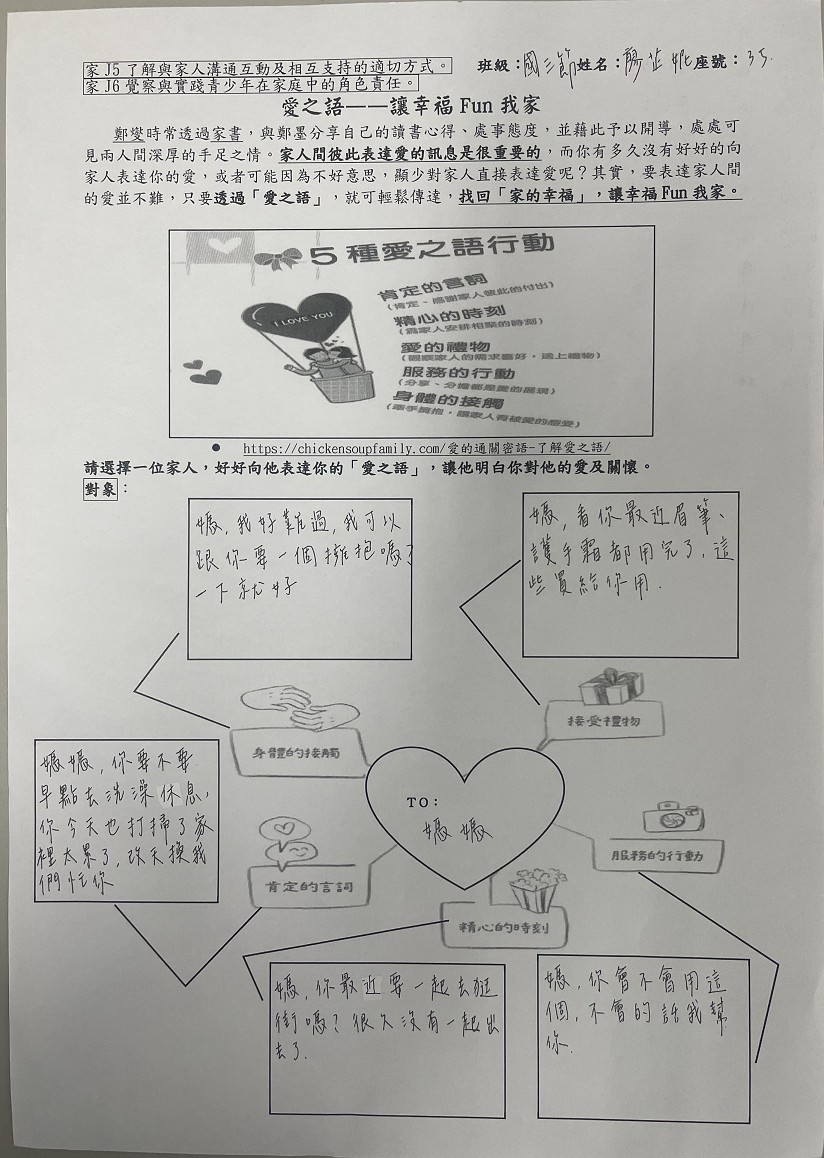 家 J5 了解與家人溝通互動及相互支持的適切方式。
家 J6 覺察與實踐青少年在家庭中的角色責任。
班級：國三節 姓名：廖芷妮 座號：35.
愛之語——讓幸福 Fun 我家
鄭燮時常透過家書，與鄭墨分享自己的讀書心得、處事態度，並藉此予以開導，處處可
見兩人間深厚的手足之情。家人間彼此表達愛的訊息是很重要的，而你有多久沒有好好的向
家人表達你的愛，或者可能因為不好意思，顯少對家人直接表達愛呢？其實，要表達家人間
的愛並不難，只要透過「愛之語」，就可輕鬆傳達，找回「家的幸福」，讓幸福 Fun 我家。
5 種愛之語行動
I LOVE YOU
肯定的言詞
(肯定、感謝家人彼此的付出)
精心的時刻
(為家人安排相聚的時刻)
愛的禮物
(觀察家人的需求喜好，送上禮物)
服務的行動
(分享、分擔都是愛的展現)
身體的接觸
(牽手擁抱，讓家人有被愛的感受)
https://chickensoupfamily.com/愛的通關密語-了解愛之語/
請選擇一位家人，好好向他表達你的「愛之語」，讓他明白你對他的愛及關懷。
對象：
媽，我好難過，我可以
跟你要一個擁抱嗎？
一下就好
媽，看你最近眉筆、
護手霜都用完了，這
些買給你用.
身體的接觸
接受禮物
媽媽，你要不要
早點去洗澡休息，
你今天也打掃了家
裡太累了，改天換我
們忙你
TO：
媽媽
肯定的言詞
服務的行動
精心的時刻
媽，你最近要一起去逛
街嗎？很久沒有一起出
去了.
媽，你會不會用這
個，不會的話我幫
你.